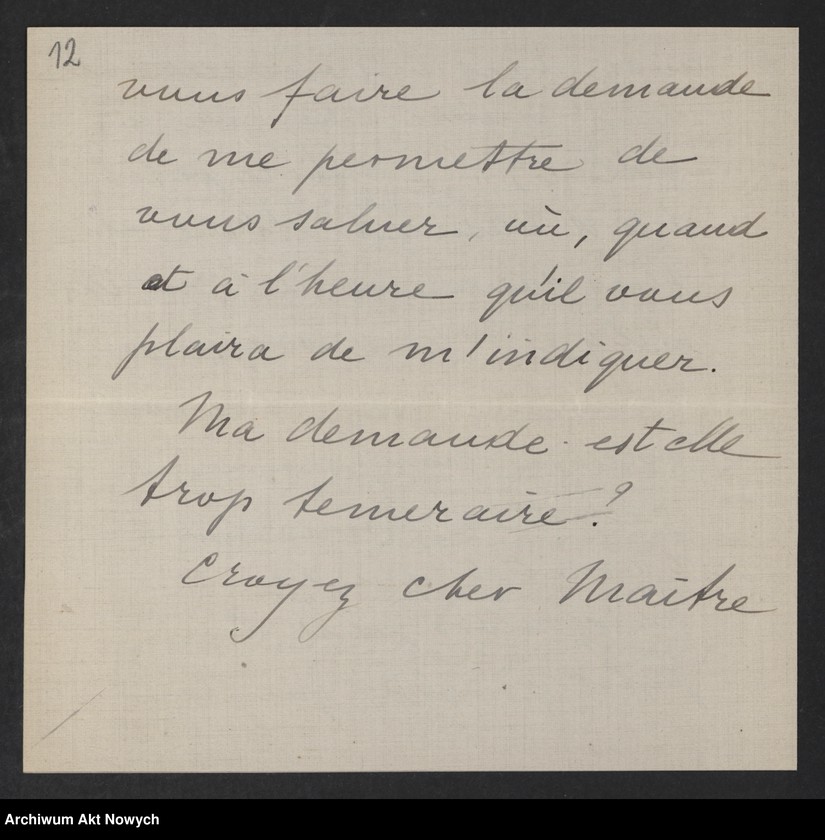 12
vous faire la demande
de me permettre de
vous saluer, où, quand
et à l'heure qu'il vous
plaira de m'indiquer.
Ma demande est elle
trop temeraire?
Croyez cher Maître
Archiwum Akt Nowych